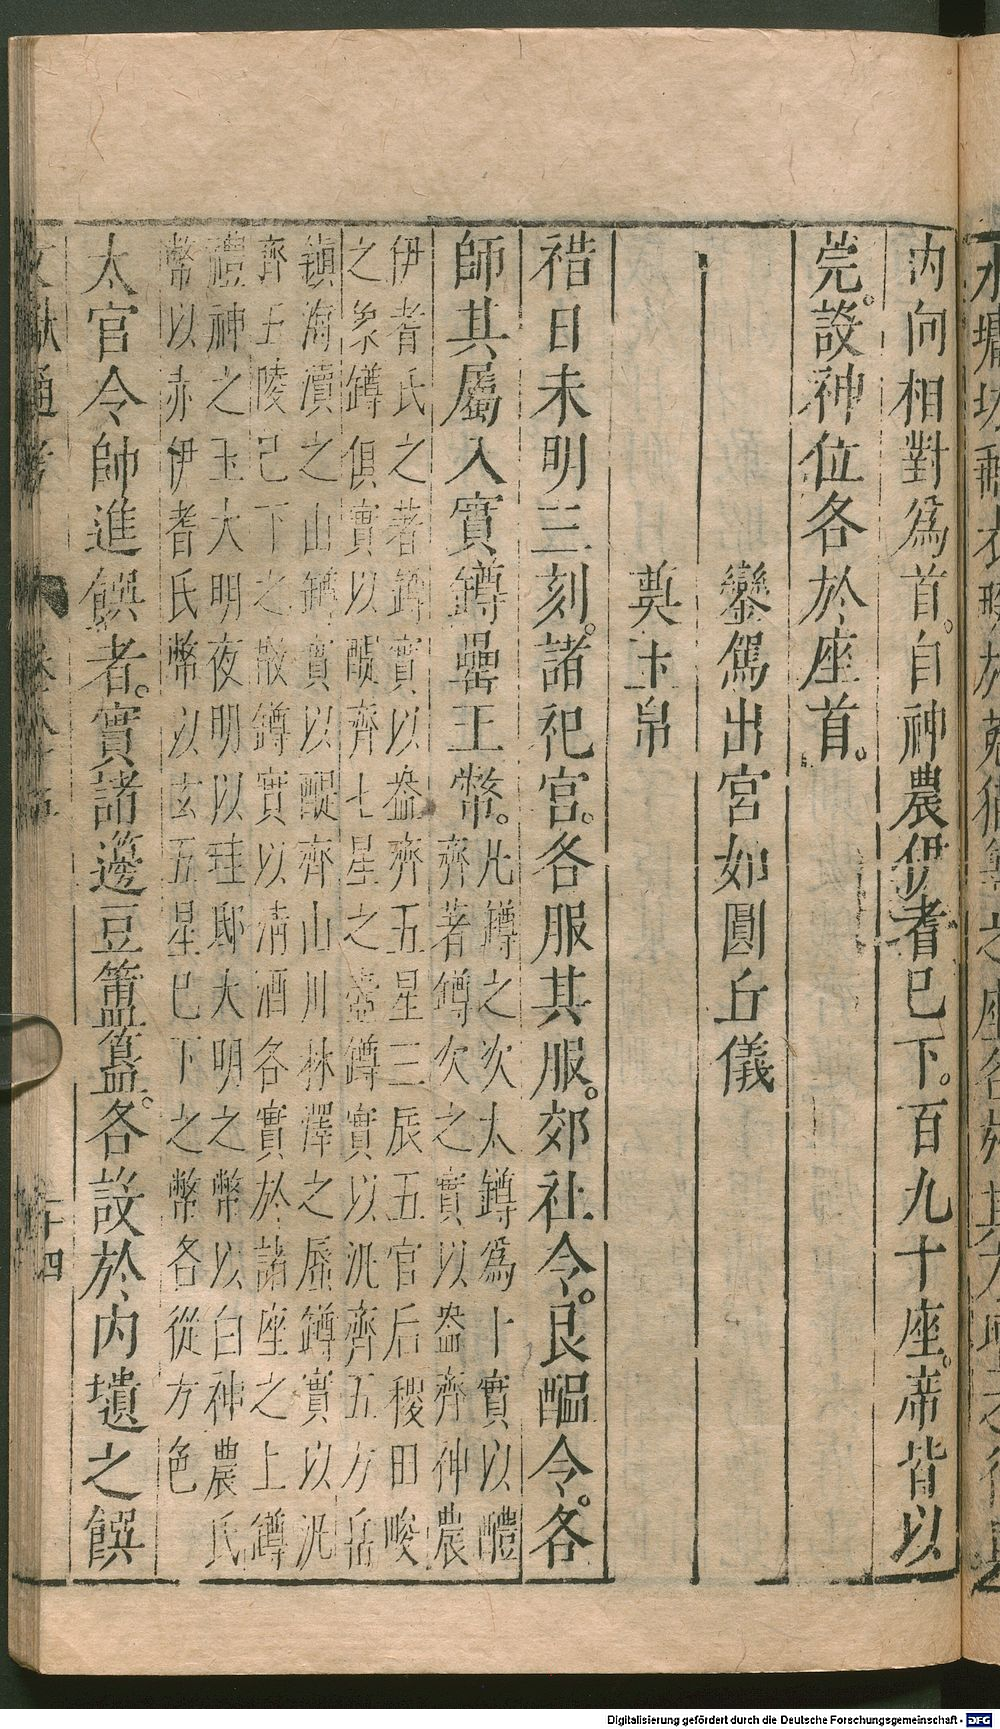 內向相對為首。自神農伊耆已下。百九十座。席皆以
莞。設神位各於座首。
鑾駕出宮如圓丘儀
奠玉帛
禇日未明三刻。諸祀官。各服其服。郊社令。良醞令。各
師其屬入實鐏罍王幣。
凡鐏之次太鐏為上實以醴
齊著鐏次之實以盎齊仲農
伊耆氏之著鐏實以盎齊五星三辰五官后稷田畯
之象鐏俱實以醍齊七星之壺鐏實以汎齊五方岳
鎮海瀆之山鐏實以醍齊山川林澤之蜃鐏實以汎
齊五陵已下之散鐏實以清酒各實於諸座之上鐏
禮神之玉大明夜明以珪邸大明之幣以白神農氏
幣以赤伊耆氏幣以玄五星已下之幣各從方色
太官令帥進饌者。實諸籩豆簠簋。各設於內壝之饌
文獻通考
二十四
Digitalisierung gefördert durch die Deutsche Forschungsgemeinschaft - DFG